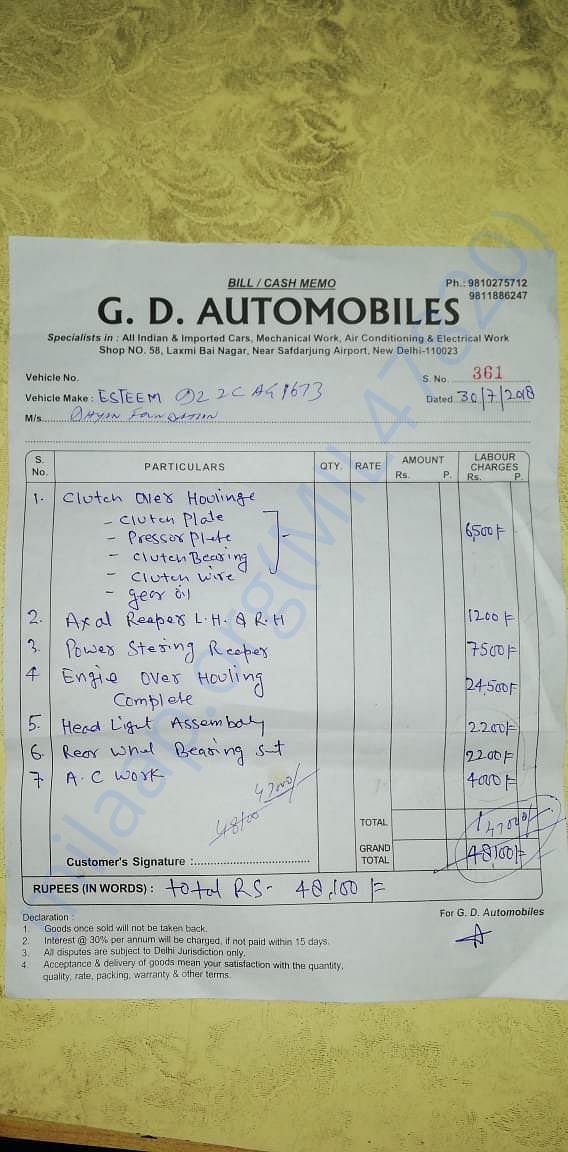 BILL / CASH MEMO
Ph.: 9810275712
9811886247
G. D. AUTOMOBILES
Specialists in : All Indian & Imported Cars, Mechanical Work, Air Conditioning & Electrical Work
Shop NO. 58, Laxmi Bai Nagar, Near Safdarjung Airport, New Delhi-110023
Vehicle No. S. No. 361
Vehicle Make : ESTEEM 2C AG 1673 Dated 30/7/2018
M/s. Foundation
S. No. PARTICULARS QTY. RATE AMOUNT Rs. P. LABOUR CHARGES Rs. P.
1. Clutch Over Houlinge
- Clutch Plate
- Pressor Plete 6,500/-
- Clutch Bearing
- Clutch Wire
- gear oil
2. Axal Reaper L.H. & R.H 1200/-
3. Power Stering Reeper 7500/-
4 Engie Over Houling 24,500/-
Complete
5. Head Light Assembaly 2200/-
6. Rear Whel Bearing Set 2200/-
7 A.C Work 4000/-
47000/-
48100
TOTAL 47000/-
GRAND TOTAL 48,100/-
Customer's Signature :
RUPEES (IN WORDS) : total RS- 48,100/-
Declaration :
1. Goods once sold will not be taken back.
2. Interest @ 30% per annum will be charged, if not paid within 15 days.
3. All disputes are subject to Delhi Jurisdiction only.
4. Acceptance & delivery of goods mean your satisfaction with the quantity, 
quality, rate, packing, warranty & other terms.
For G. D. Automobiles
milaap.org(MIL47820)